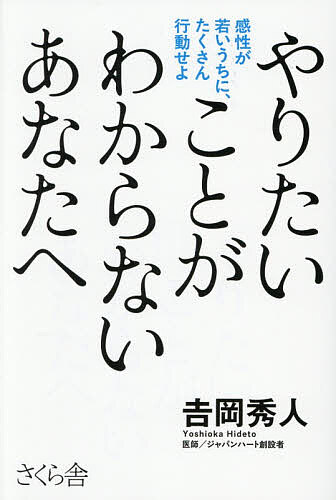 やりたい
ことが
わからない
あなたへ
感性が
若いうちに、
たくさん
行動せよ
𠮷岡秀人
Yoshioka Hideto
医師／ジャパンハート創設者
さくら舎